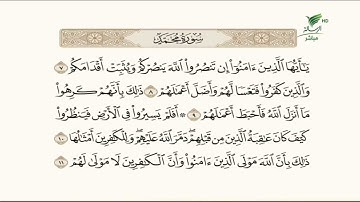 الرسالة HD
مباشر
سورة محمد
يَٰٓأَيُّهَا ٱلَّذِينَ ءَامَنُوٓا۟ إِن تَنصُرُوا۟ ٱللَّهَ يَنصُرْكُمْ وَيُثَبِّتْ أَقْدَامَكُمْ ٧
وَٱلَّذِينَ كَفَرُوا۟ فَتَعْسًا لَّهُمْ وَأَضَلَّ أَعْمَٰلَهُمْ ٨ ذَٰلِكَ بِأَنَّهُمْ كَرِهُوا۟
مَآ أَنزَلَ ٱللَّهُ فَأَحْبَطَ أَعْمَٰلَهُمْ ٩ ۞ أَفَلَمْ يَسِيرُوا۟ فِى ٱلْأَرْضِ فَيَنظُرُوا۟
كَيْفَ كَانَ عَٰقِبَةُ ٱلَّذِينَ مِن قَبْلِهِمْ ۚ دَمَّرَ ٱللَّهُ عَلَيْهِمْ ۖ وَلِلْكَٰفِرِينَ أَمْثَٰلُهَا ١٠
ذَٰلِكَ بِأَنَّ ٱللَّهَ مَوْلَى ٱلَّذِينَ ءَامَنُوا۟ وَأَنَّ ٱلْكَٰفِرِينَ لَا مَوْلَىٰ لَهُمْ ١١